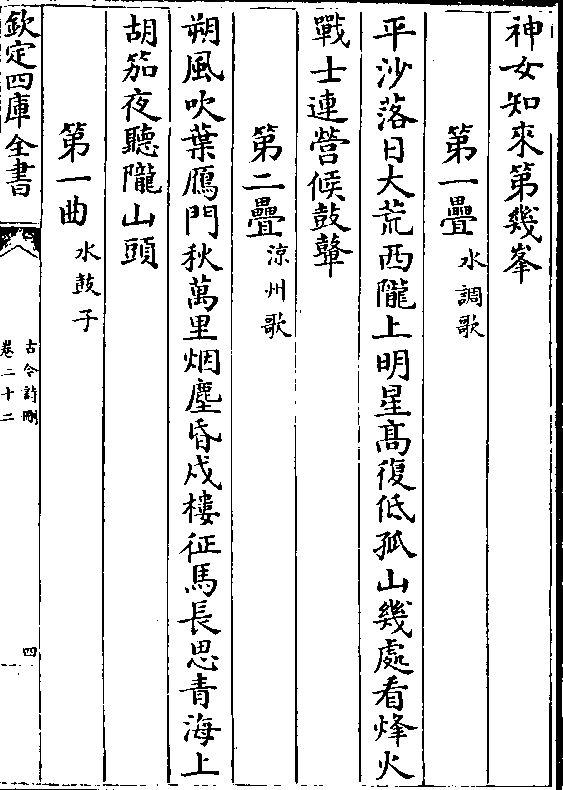 神女知來第幾峯
第一疊 水調歌
平沙落日大荒西隴上明星高復低孤山幾處看烽火
戰士連營候鼓鼙
第二疊 涼州歌
朔風吹葉鴈門秋萬里烟塵昏戍樓征馬長思青海上
胡笳夜聽隴山頭
第一曲 水鼓子
欽定四庫全書
古今詩刪
卷二十二
四